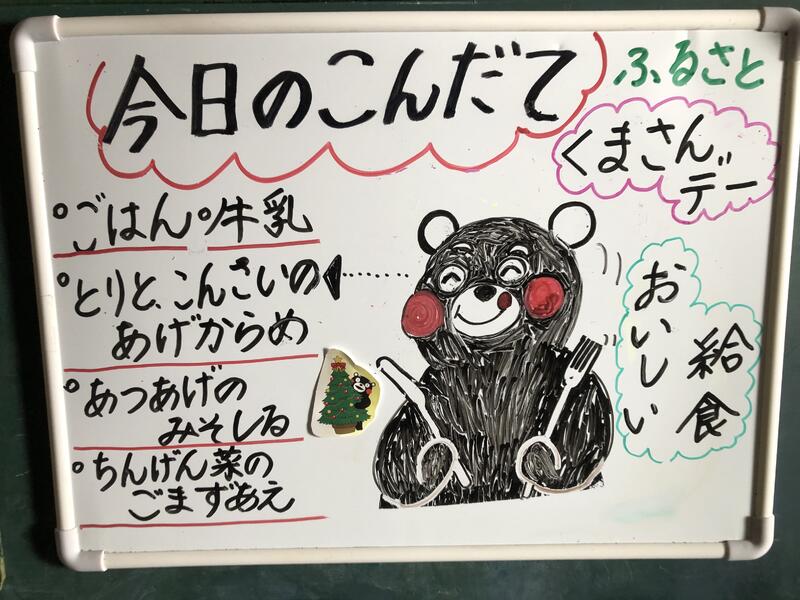 今日のこんだて
ふるさと
くまさんデー
°ごはん °牛乳
°とりと、こんさいの
あげからめ
°あつあげの
みそしる
°ちんげん菜の
ごまずあえ
おいしい
給食